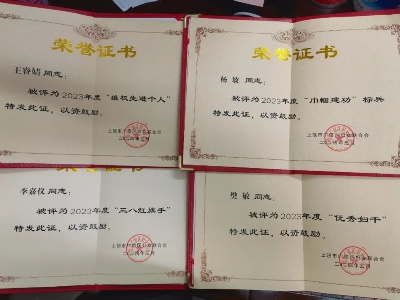 荣誉证书
王睿婧 同志：
被评为2023年度“维权先进个人”
特发此证，以资鼓励。
荣誉证书
杨 敏 同志：
被评为2023年度“巾帼建功”标兵
特发此证，以资鼓励。
上饶市广信区妇女联合会
二〇二四年三月
荣誉证书
李嘉仪 同志：
被评为2023年度“三八红旗手”
特发此证，以资鼓励。
上饶市广信区妇女联合会
二〇二四年三月
樊 敏 同志：
被评为2023年度“优秀妇干”
特发此证，以资鼓励。
上饶市广信区妇女联合会
二〇二四年三月